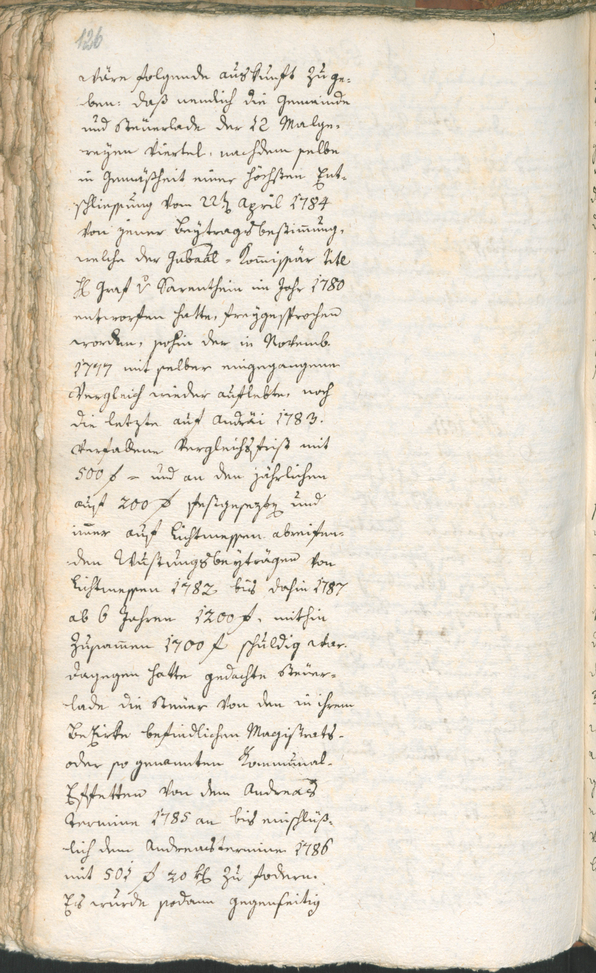 126
wäre folgende auskunft zu ge-
ben: daß nemlich die Gemeinde
und Steuerlade der 12 Malge-
reyen Viertel, nachdem selbe
in Gemäßheit einer höchsten Ent-
schliessung vom April 1784
von jener Beytragsbestimmung,
welche der Gubaal-Kommissär titl
H Graf v Sarenthein im Jahr 1780
entworfen hatte, freygesprochen
worden, sohin der in Novemb.
1777 mit selber eingegangene
Vergleich wieder auflebte, noch
die letzte auf Andräi 1783.
verfallene Vergleichsfrist mit
500 f – und an den jährlichen
auf 200 f festgesezten und
immer auf Lichtmessen abreifen-
den Wustungsbeyträgen von
Lichtmessen 1782 bis dahin 1787
ab 6 Jahren 1200 f, mithin
zusammen 1700 f schuldig war.
dagegen hatte gedachte Steuer-
lade die Steuer von den in ihrem
Bezirke befindlichen Magistrats-
oder so genannten Kommunal-
Effekten von dem Andreas
Termine 1785 an bis einschlüß-
lich dem Andreastermine 1786
mit 501 f 20 kr zu fodern.
Es wurde sodann gegenseitig